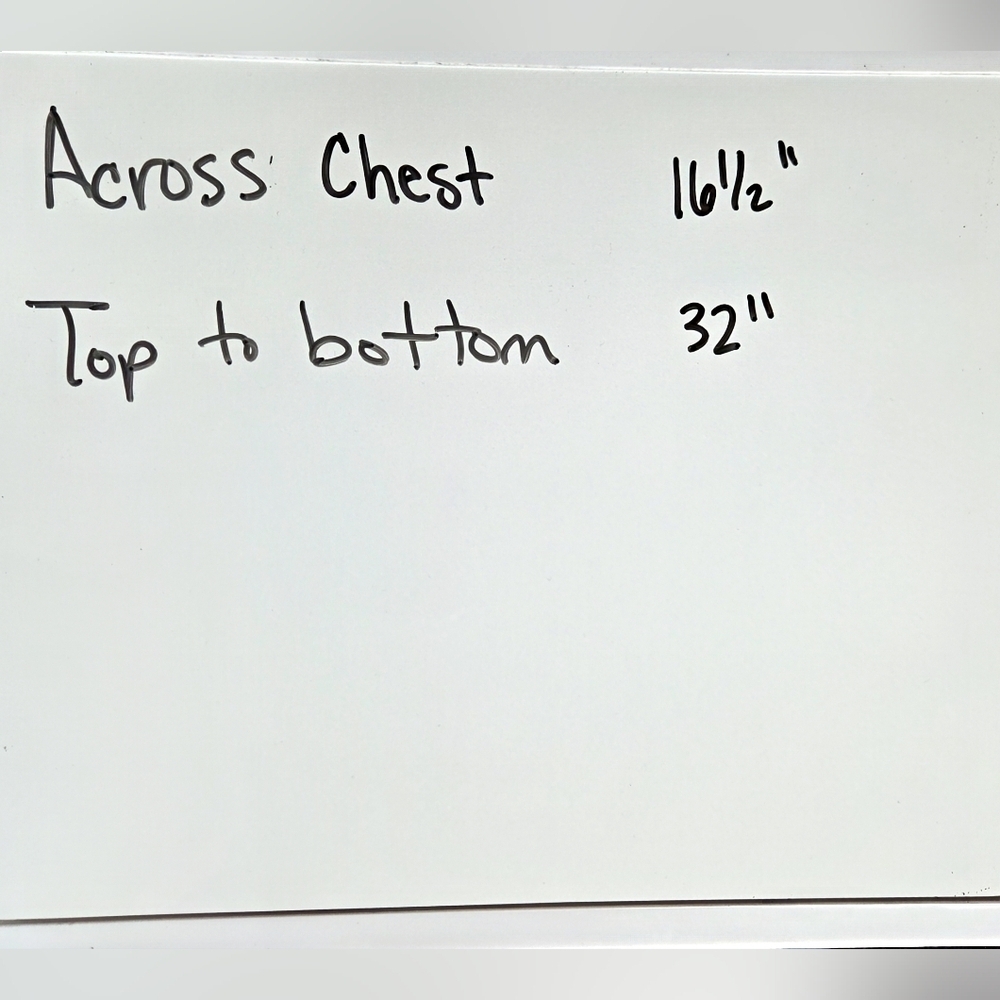 Across Chest 16 1/2"
Top to bottom 32"